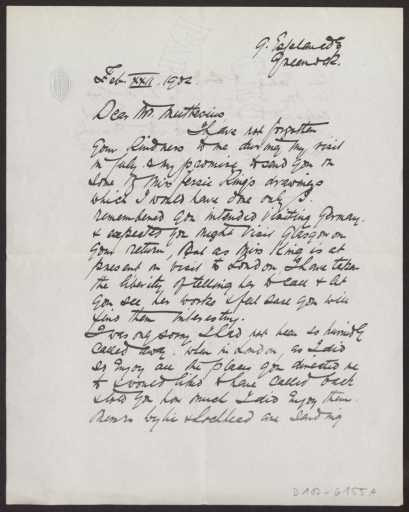 9. Esplanade
Greenock.
Feb. XXII. 1902
Dear Mr Muthesius
I have not forgotten
your kindness to me during my visit
in July & my promise to send you on
some of Miss Jessie King's drawings
which I would have done only I
remembered you intended visiting Germany
& expected you might visit Glasgow on
your return, But as Miss King is at
present on visit to London I have taken
the liberty of telling her to call & let
you see her works I feel sure you will
find them interesting.
I was only sorry I had not been so hurriedly
called away. when in London, as I did
so enjoy all the places you directed me
to & would liked to have called back
& told you how much I did enjoy them.
Messrs Wylie & Lochhead are sending
D102-6155A